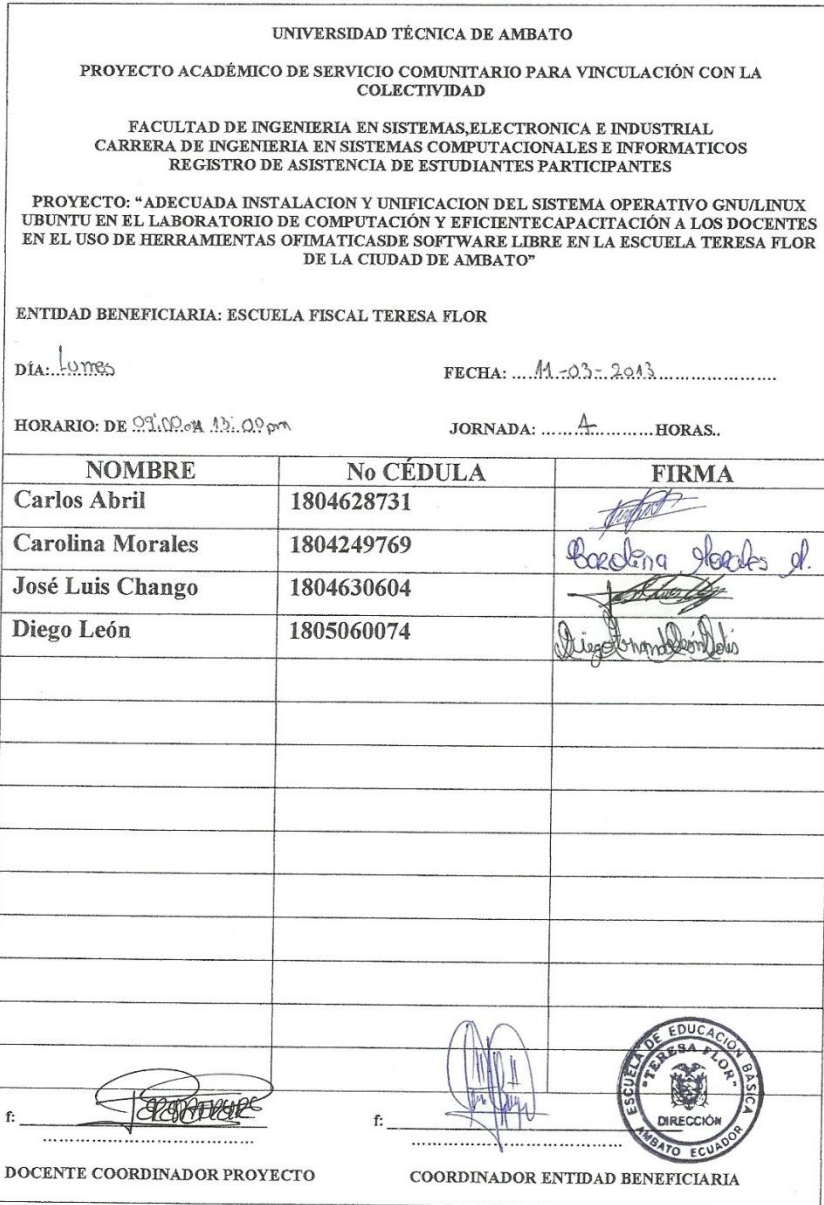 UNIVERSIDAD TÉCNICA DE AMBATO
PROYECTO ACADÉMICO DE SERVICIO COMUNITARIO PARA VINCULACIÓN CON LA
COLECTIVIDAD
FACULTAD DE INGENIERIA EN SISTEMAS,ELECTRONICA E INDUSTRIAL
CARRERA DE INGENIERIA EN SISTEMAS COMPUTACIONALES E INFORMATICOS
REGISTRO DE ASISTENCIA DE ESTUDIANTES PARTICIPANTES
PROYECTO: “ADECUADA INSTALACION Y UNIFICACION DEL SISTEMA OPERATIVO GNU/LINUX
UBUNTU EN EL LABORATORIO DE COMPUTACIÓN Y EFICIENTECAPACITACIÓN A LOS DOCENTES
EN EL USO DE HERRAMIENTAS OFIMATICASDE SOFTWARE LIBRE EN LA ESCUELA TERESA FLOR
DE LA CIUDAD DE AMBATO”
ENTIDAD BENEFICIARIA: ESCUELA FISCAL TERESA FLOR
DÍA: Lunes FECHA: 11-03-2013
HORARIO: DE 09:00 a 13:00 pm JORNADA: 4 HORAS..
NOMBRE No CÉDULA FIRMA
Carlos Abril 1804628731
Carolina Morales 1804249769 Carolina Morales
José Luis Chango 1804630604
Diego León 1805060074 Diego León Solis
ESCUELA DE EDUCACIÓN BÁSICA
"TERESA FLOR"
DIRECCIÓN
AMBATO ECUADOR
f: f:
DOCENTE COORDINADOR PROYECTO COORDINADOR ENTIDAD BENEFICIARIA